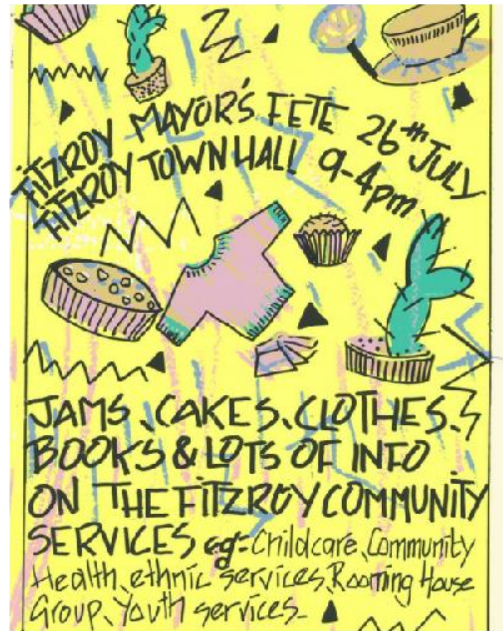 FITZROY MAYOR'S FETE 26th JULY
FITZROY TOWN HALL 9-4pm
JAMS, CAKES, CLOTHES,
BOOKS & LOTS OF INFO
ON THE FITZROY COMMUNITY
SERVICES eg- Childcare, Community
Health, ethnic services, Rooming House
Group, Youth services-